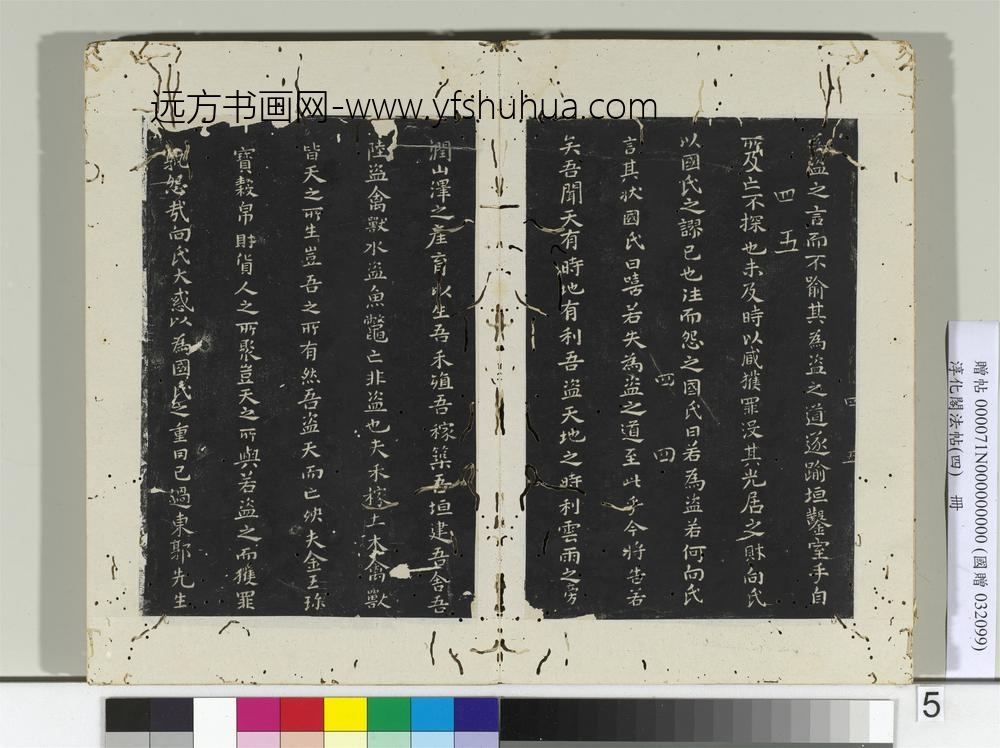 远方书画网-www.yfshuhua.com
為盜之言而不喻其為盜之道遂踰垣鑿室手目
四五
四五
所及亡不探也未及時以臧獲罪沒其先居之財向氏
以國氏之謬己也往而怨之國氏曰若為盜若何向氏
四四
言其狀國氏曰嘻若失為盜之道至此乎今將告若
矣吾聞天有時地有利吾盜天地之時利雲雨之滂
潤山澤之產育以生吾禾殖吾稼築吾垣建吾舍吾
陸盜禽獸水盜魚鼈亡非盜也夫禾稼土木禽獸
皆天之所生豈吾之所有然吾盜天而亡殃夫金玉珍
寶穀帛財貨人之所聚豈天之所與若盜之而獲罪
孰怨哉向氏大惑以為國氏之重罔已過東郭先生
贈帖 000071N000000000 (國贈 032099)
淳化閣法帖(四) 冊
5